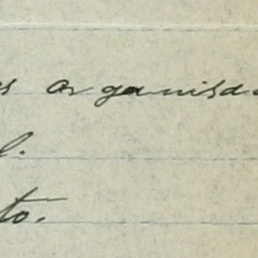 s organisa
l.
to.